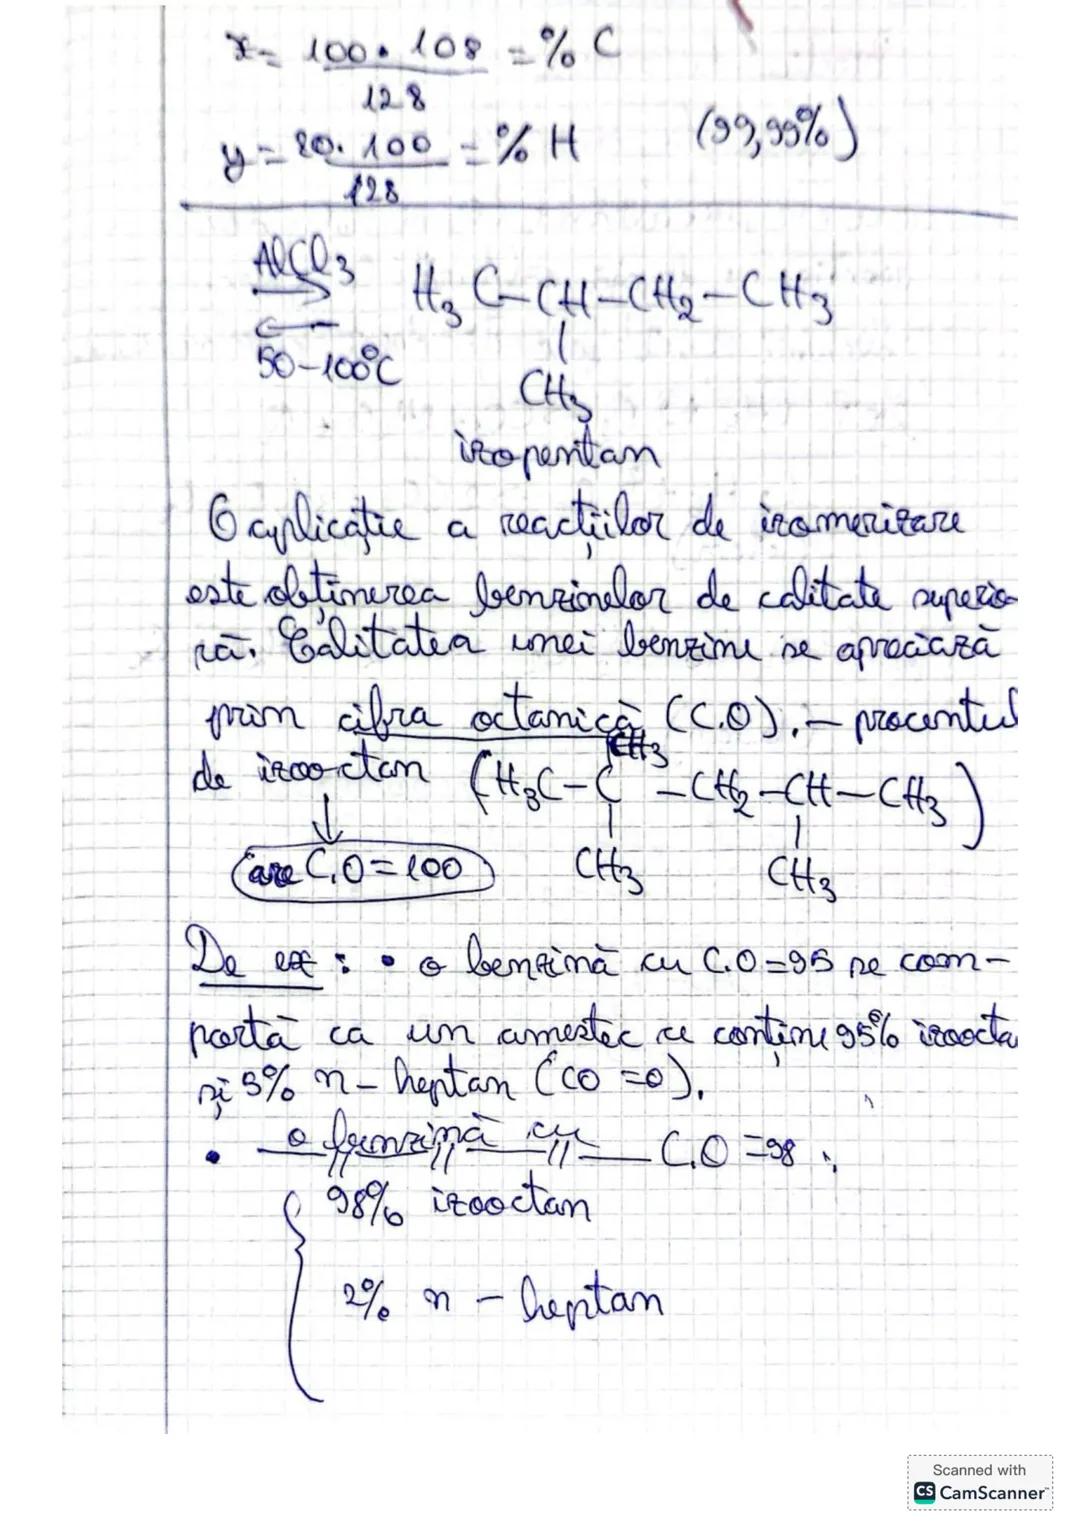 x= 100•108 =% C
128
y= 20. 100 =% H (99,99%)
128
AlCl3
50-100°C
H3C-CH-CH2-CH3
CH3
izopentan
O aplicație a reacțiilor de izomerizare
este obținerea benzinelor de calitate superio-
ră. Calitatea unei benzine se apreciază
prin cifra octanică (C.O). - procentul
CH3
de izooctan (H3C-C-CH2-CH-CH3)
are C.O=100 CH3 CH3
De ex: • o benzină cu C.O=95 se com-
portă ca un amestec ce conține 95% izoocta
și 5% n-heptan (CO=0).
• o benzină cu C.O=98 :
98% izooctan
2% n-heptan
Scanned with
CS CamScanner